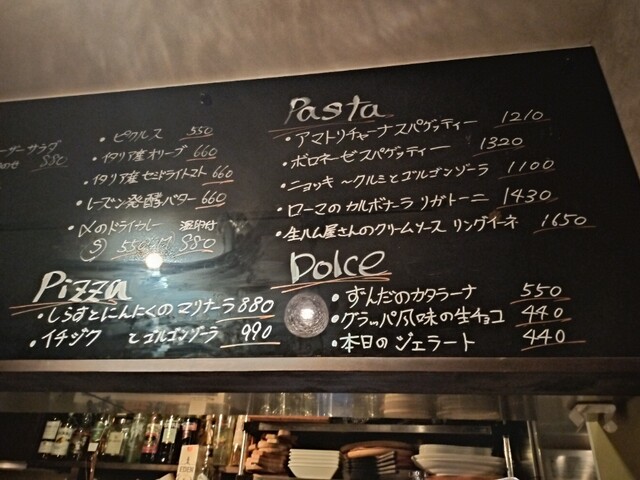 ーザーサラダ
880
・ピクルス 550
・イタリア産オリーブ 660
・イタリア産セミドライトマト 660
・レーズン発酵バター 660
・〆のドライカレー 温卵付
S 550 M 880
Pizza
・しらすとにんにくのマリナーラ 880
・イチジク とゴルゴンゾーラ 990
Pasta
・アマトリチャーナスパゲッティー 1210
・ボロネーゼスパゲッティー 1320
・ニョッキ 〜クルミとゴルゴンゾーラ 1100
・ローマのカルボナーラ リガトーニ 1430
・生ハム屋さんのクリームソース リングイーネ 1650
Dolce
・ずんだのカタラーナ 550
・グラッパ風味の生チョコ 440
・本日のジェラート 440